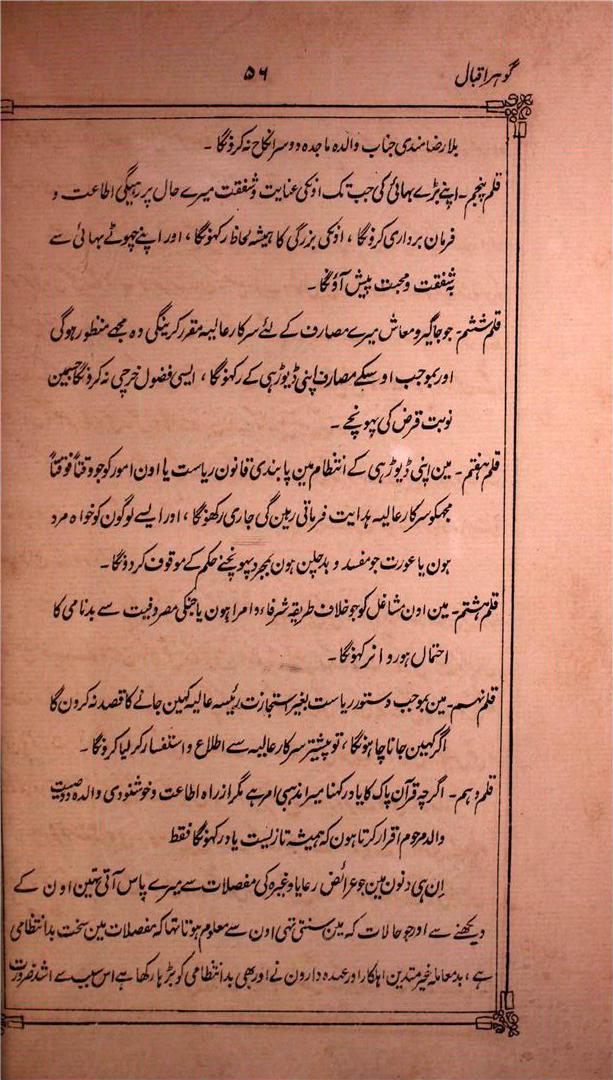 گوہر اقبال
۵۶
بلا رضامندی جناب والدہ ماجدہ دوسرا نکاح نہ کرونگا ۔
قلم پنجم ۔ اپنے بڑے بہائی کی جب تک اونکی عنایت و شفقت میرے حال پر رہیگی اطاعت و
فرمان برداری کرونگا ، اونکی بزرگی کا ہمیشہ لحاظ رکہونگا ، اور اپنے چہوٹے بہائی سے
بہ شفقت و محبت پیش آؤنگا ۔
قلم ششم ۔ جو جاگیر و معاش میرے مصارف کے لئے سرکار عالیہ مقرر کرینگی وہ مجہے منظور ہوگی
اور بموجب اوسکے مصارف اپنی ڈیوڑہی کے رکہونگا ، ایسی فضول خرچی نہ کرونگا جسمین
نوبت قرض کی پہونچے ۔
قلم ہفتم ۔ مین اپنی ڈیوڑہی کے انتظام مین پابندی قانون ریاست یا اون امور کو جو وقتاً فوقتاً
مجہکو سرکار عالیہ ہدایت فرماتی رہین گی جاری رکھونگا ، اور ایسے لوگون کو خواہ مرد
ہون یا عورت جو مفسد و بدچلن ہون بمجرد پہونچنے حکم کے موقوف کردونگا ۔
قلم ہشتم ۔ مین اون مشاغل کو جو خلاف طریقہ شرفاء و امرا ہون یا جنکی مصروفیت سے بدنامی کا
احتمال ہو روا نرکہونگا ۔
قلم نہم ۔ مین بموجب دستور ریاست بغیر استجازت رئیسہ عالیہ کہین جانے کا قصد نہ کرون گا
اگر کہین جانا چاہونگا ، تو پیشتر سرکار عالیہ سے اطلاع و استفسار کرلیا کرونگا ۔
قلم دہم ۔ اگرچہ قرآن پاک کا یاد رکہنا میرا مذہبی امر ہے مگر از راہ اطاعت و خوشنودی والدہ و وصیت
والد مرحوم اقرار کرتا ہون کہ ہمیشہ تا زیست یاد رکہونگا فقط
اِن ہی دنون مین جو عرائض رعایا وغیرہ کی مفصلات سے میرے پاس آتی تہین اون کے
دیکہنے سے اور جو حالات کہ مین سنتی تہی اون سے معلوم ہوتا تہا کہ مفصلات مین سخت بدانتظامی
ہے ، بد معاملہ غیر متدین اہلکار اور عہدہ دارون نے اور بھی بدانتظامی کو بڑہا رکھا ہے اس سبب سے اشد ضرورت